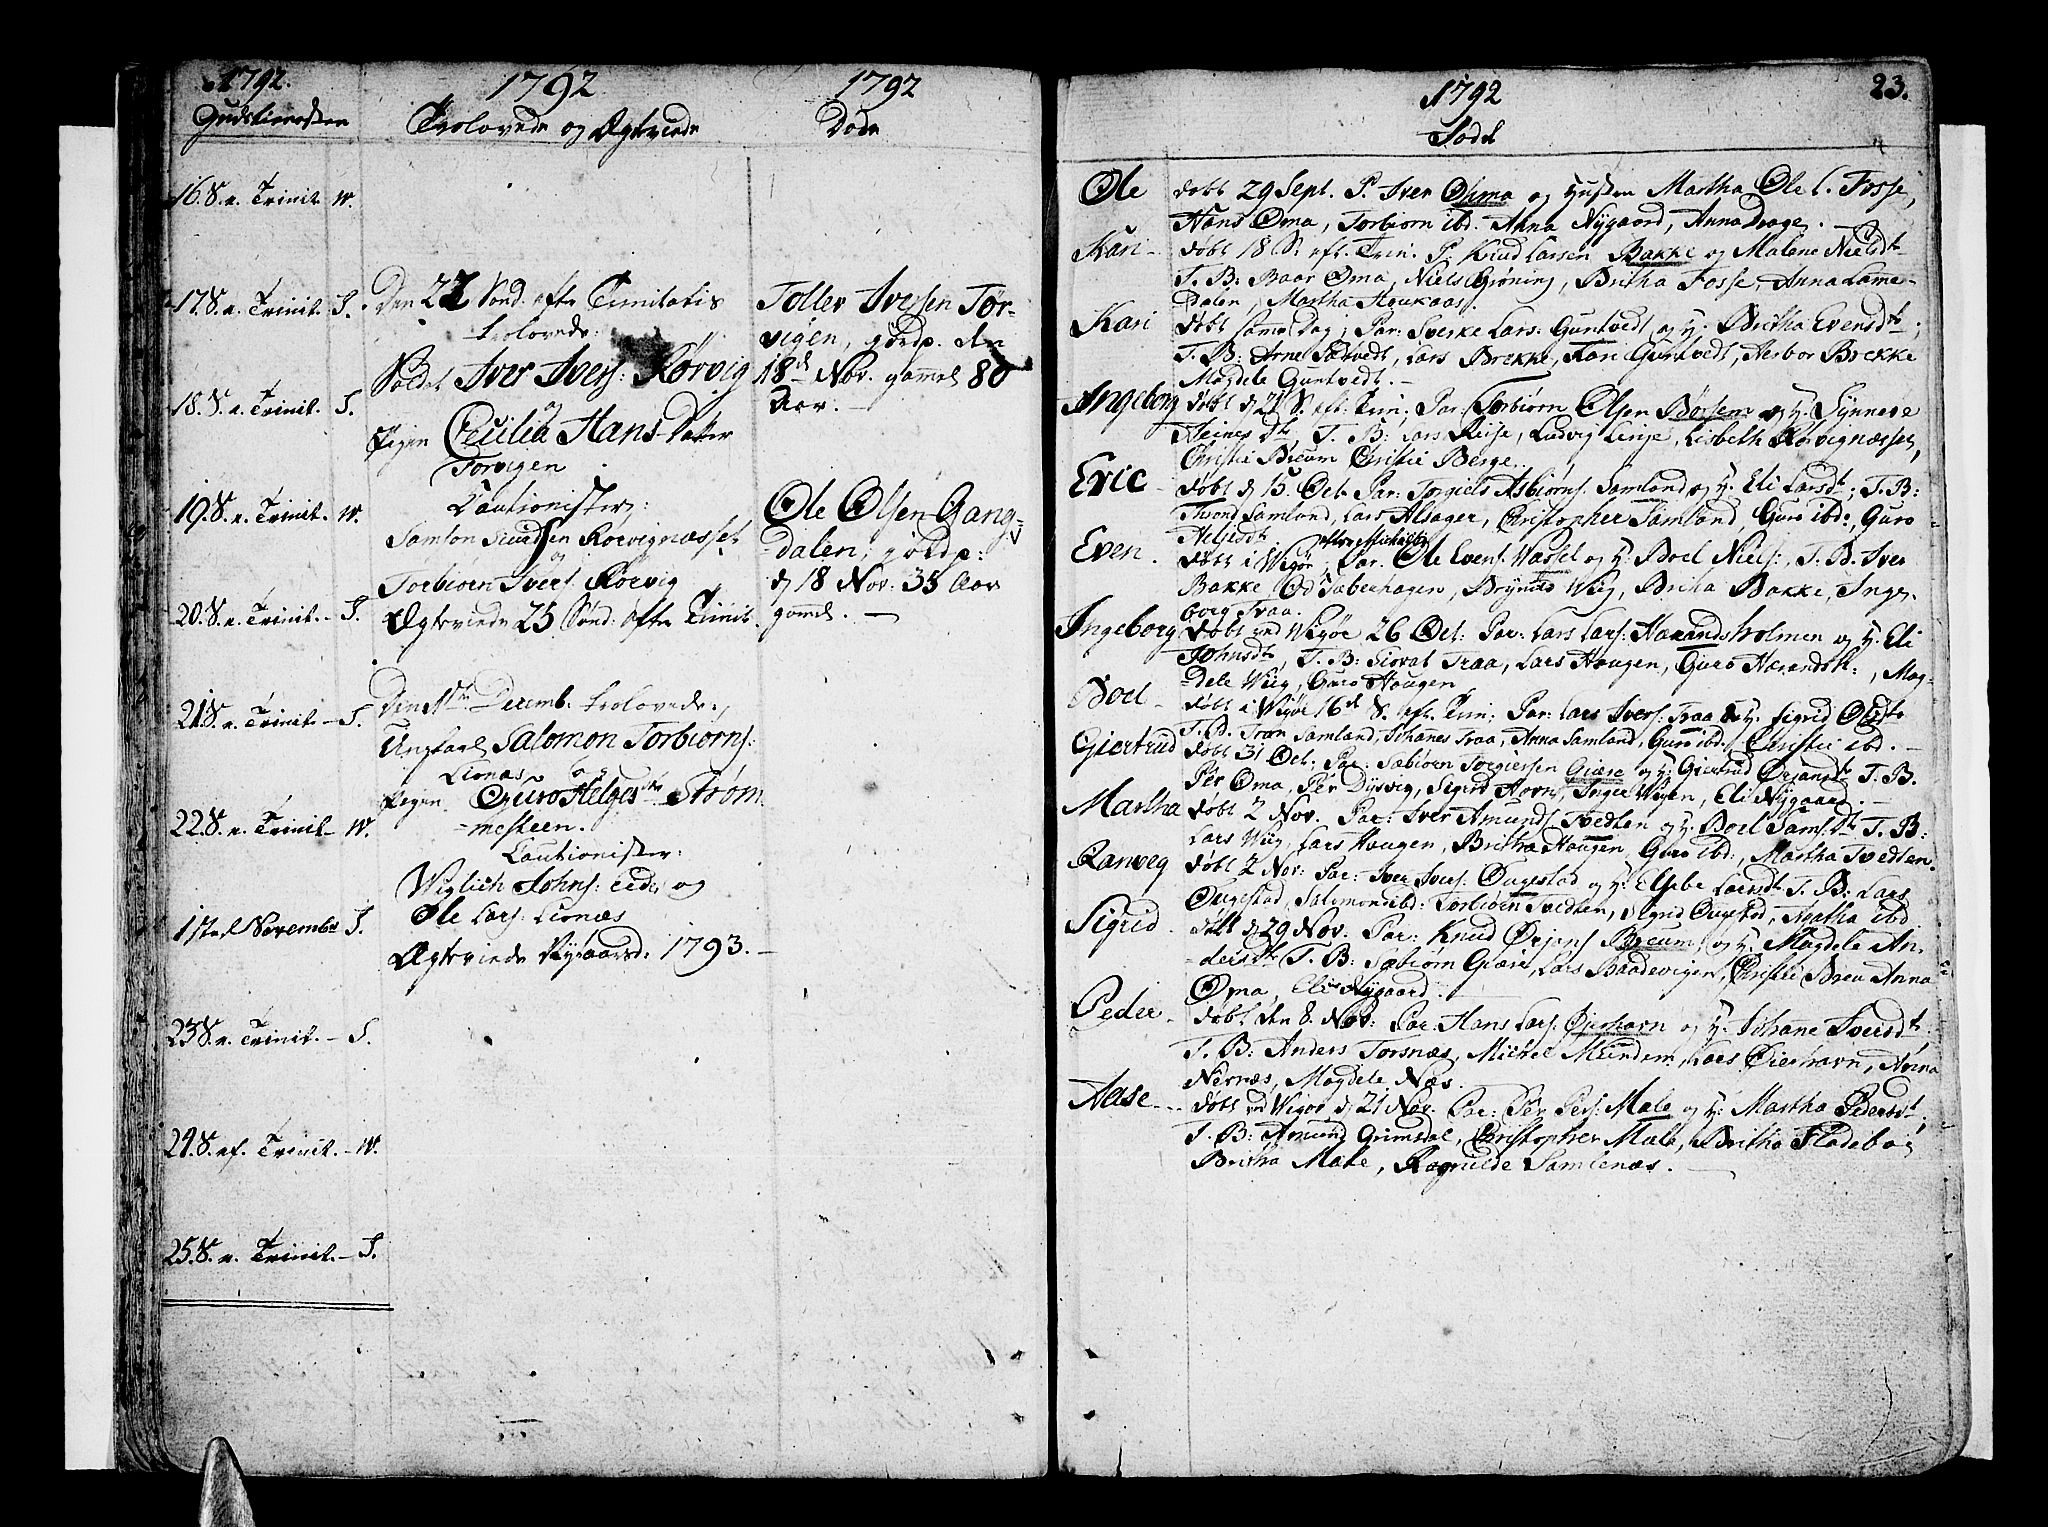 1792.
Gudstienesten
16. S. e. Trinit. W.
17. S. e. Trinit. - S.
18. S. e. Trinit. S.
19. S. e. Trinit. W.
20. S. e. Trinit. - S.
21. S. e. Trinit. - S.
22. S. e. Trinit - W.
1ste d. Novembr S.
23. S. e. Trinit. - S.
24. S. ef. Trinit. - W.
25. S. e. Trinit. - S.
1792
Trolovede og Ægteviede
Den 22 Sønd. efter Trinitatis
trolovede:
Soldat Iver Ivers: Rørvig
og
Pigen Cecilia Hans Datter
Torvigen
Cautionister:
Samson Rørvignæsset
og
Torbiørn Ivers. Rørvig
Ægteviede 25 Sønd: efter Trinit.
Den 1ste Decemb. trolovede,
Ungkarl Salomon Torbiørns:
Lionæs og
Pigen Guro Helgesdtr Strøm-
-mesteen.
Cautionister:
Wiglich Johns: ibid og
Ole Lars: Lionæs
Ægteviede Nyeaarsd: 1793. -
1792
Døde
Toller Iversen Tør-
vigen, gdp. den
18d Nov. gammel 80
Aar. -
Ole Olsen Gang-
-dalen, giordp:
d 18 Nov. 35 Aar
gaml. -
1792
23.
Født
Ole døbt 29 Sept. P. Iver Oma og Hustru Martha Ole l. Fosse,
Hans Oma, Torbiørn ibd. Anna Nygaard, Anna Drage. -
Kari - døbt 18 S: eft. Trin. P. Knud Larsen Bakke og Malene Nielsdtr
T. B: Baar Oma, Niels Grøning, Britha Fosse, Anna Lame-
Dalen, Martha Houkaas.
Kari døbt samme Dag, Par: Sverke Lars: Guntvedt og H. Britha Evensdtr.
T. B: Arne Sædtvedt, Lars Brekke, Kari Guntvedt, Aerbor Brekke
Magdele Guntvedt. -
Ingeborg døbt d 21 S. eft. Trin; Par: Torbiørn Olsen Børsem og H. Synneve
Heines dtr, T. B: Lars Reise, Ludvig Linje, Lisbeth Rørvignæsset,
Christi Breum Christi Berge.
Eric - døbt d 15 Oct. Par: Torgiels Asbiørns. Samland og H. Eli Larsdtr; T. B:
Thrond Samland, Lars Alsager, Christopher Samland, Guro ibd:, Guro
Helgesdtr
Even. døbt i Wigør, Par. Ole Evens. Wassel og H. Boel Niels:, T. B. Iver
Bakke, Od Taberhagen, Brynild Wiig, Britha Bakke, Inge-
borg Traa.
Ingeborg døbt ved Wigør 26 Oct: Par: Lars Lars: Harandsholmen og H. Eli
Johnsdtr, T. B: Siovat Traa, Lars Hougen, Guro Harandsh:, Mag-
-dele Wiig, Guro Hougen
Boel - døbt i Wigør 16d S. eft. Trin: Par: Lars Ivers: Traa & H. Sigrid Olsdtr
T. B. Samland, Johanes Traa, Anna Samland, Guro ibd. Christi ibd. -
Giertrud døbt 31 Oct; Par: Sæbiørn Torgiersen Giære og H: Giertrud Ørjansdtr T. B.
Per Oma, Per Dysvig, Sigrid Hovn, Inger Wigen, Eli Nygaard. -
Martha døbt 2 Nov. Par: Iver Amunds Tvedten og H. Boel Sams. Dtr T. B:
Lars Wiig, Lars Hougen, Britha Hougen, Guro ibd:, Martha Tvedten.
Ranveg døbt 2 Nov: Par: Iver Ivers: Øugestad og H. Elsebe Larsdtr T. B: Lars
Øugestad, Salemon ibd: Torbiørn Tvedten, Sigrid Øugstad, Agatha ibd
Sigrid. døbt d 29 Nov. Par: Knud Ørjans Breum og H. Magdele An-
-dersdtr T. B: Sæbiørn Giære, Lars Baadevigen, Christi Breu Anna
Oma, Eli Nygaard.
Peder - døbt den 8. Nov: Par: Hans Lars. Øierhavn og H. Johane Iversdtr.
T. B: Anders Torsnæs, Michel Mundem, Lars Øierhavn, Anna
Nernæs, Magdele Næs.
Aase - døbt ved Wigør, d 21 Nov. Par: Per Pers: Mæle og H: Martha Pedersdtr,
T. B: Amund Grimsdal, Christopher Mæle, Britha Fladebøe
Britha Mæle, Ragnilde Samlenæs. -